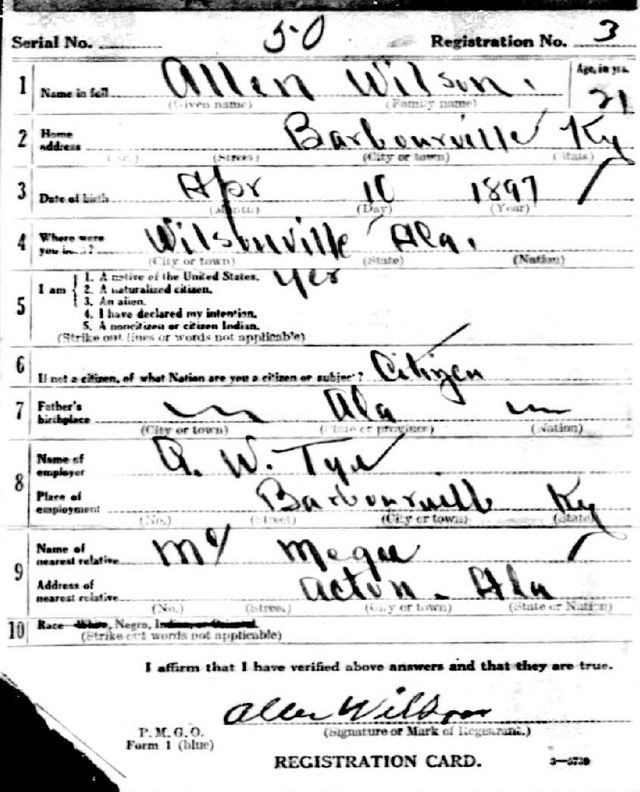 Serial No. 50 Registration No. 3
1 Name in full Allen Wilson. Age, in yrs. 21
(Given name) (Family name)
2 Home address Barbourville Ky
(No.) (Street) (City or town) (State)
3 Date of birth Apr 10 1897
(Month) (Day) (Year)
4 Where were you born? Wilsonville Ala.
(City or town) (State) (Nation)
5 I am 1. A native of the United States. Yes
2. A naturalized citizen.
3. An alien.
4. I have declared my intention.
5. A noncitizen or citizen Indian.
(Strike out lines or words not applicable)
6 If not a citizen, of what Nation are you a citizen or subject? Citizen
7 Father's birthplace Ala
(City or town) (State or province) (Nation)
8 Name of employer W. Tye
Place of employment Barbourville Ky
(No.) (Street) (City or town) (State)
9 Name of nearest relative Megee
Address of nearest relative Acton - Ala
(No.) (Street) (City or town) (State or Nation)
10 Race White, Negro, Indian, or Oriental.
(Strike out words not applicable)
I affirm that I have verified above answers and that they are true.
Allen Wilson
(Signature or Mark of Registrant.)
P. M. G. O.
Form 1 (blue)
REGISTRATION CARD. 3—5739